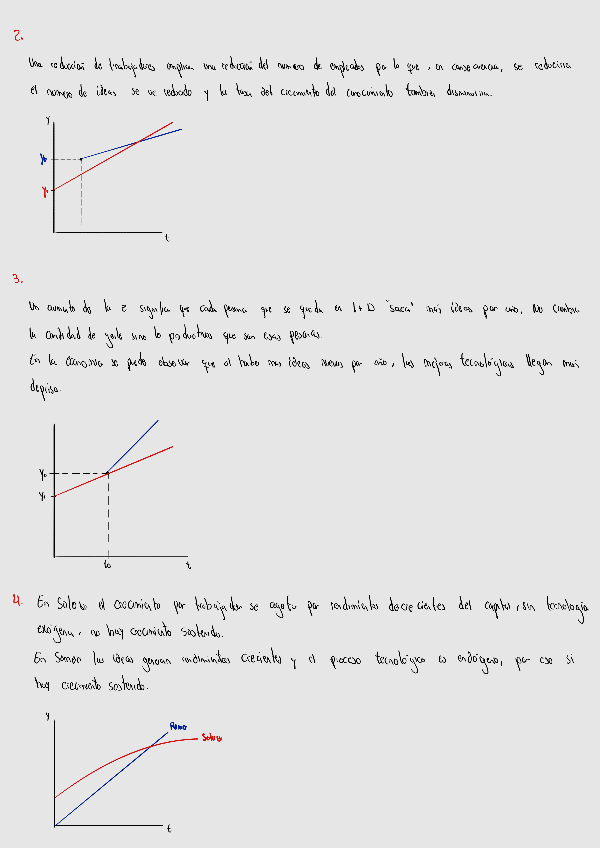 2.
Una reducción de trabajadores implica una reducción del numero de empleados por lo que, en consecuencia, se reduciria
el numero de ideas se ve reducido y la tasa del crecimiento del conocimiento tambien disminuiria.
y
y₀
y₁
t
3.
Un aumento de la z significa que cada persona que se queda en I+D "saca" más ideas por año, No cambia
la cantidad de gente sino lo productivas que son esas personas.
En la economia se puede observar que al haber mas ideas nuevas por año, las mejoras tecnológicas llegan mas
deprisa.
y₀
y₁
t₀
t
4. En Solow el crecimiento por trabajador se agota por rendimientos decrecientes del capital, sin tecnología
exógena, no hay crecimiento sostenido.
En Romer las ideas generan rendimientos crecientes y el proceso tecnológico es endógeno, por eso si
hay crecimiento sostenido.
y
Romer
Solow
t